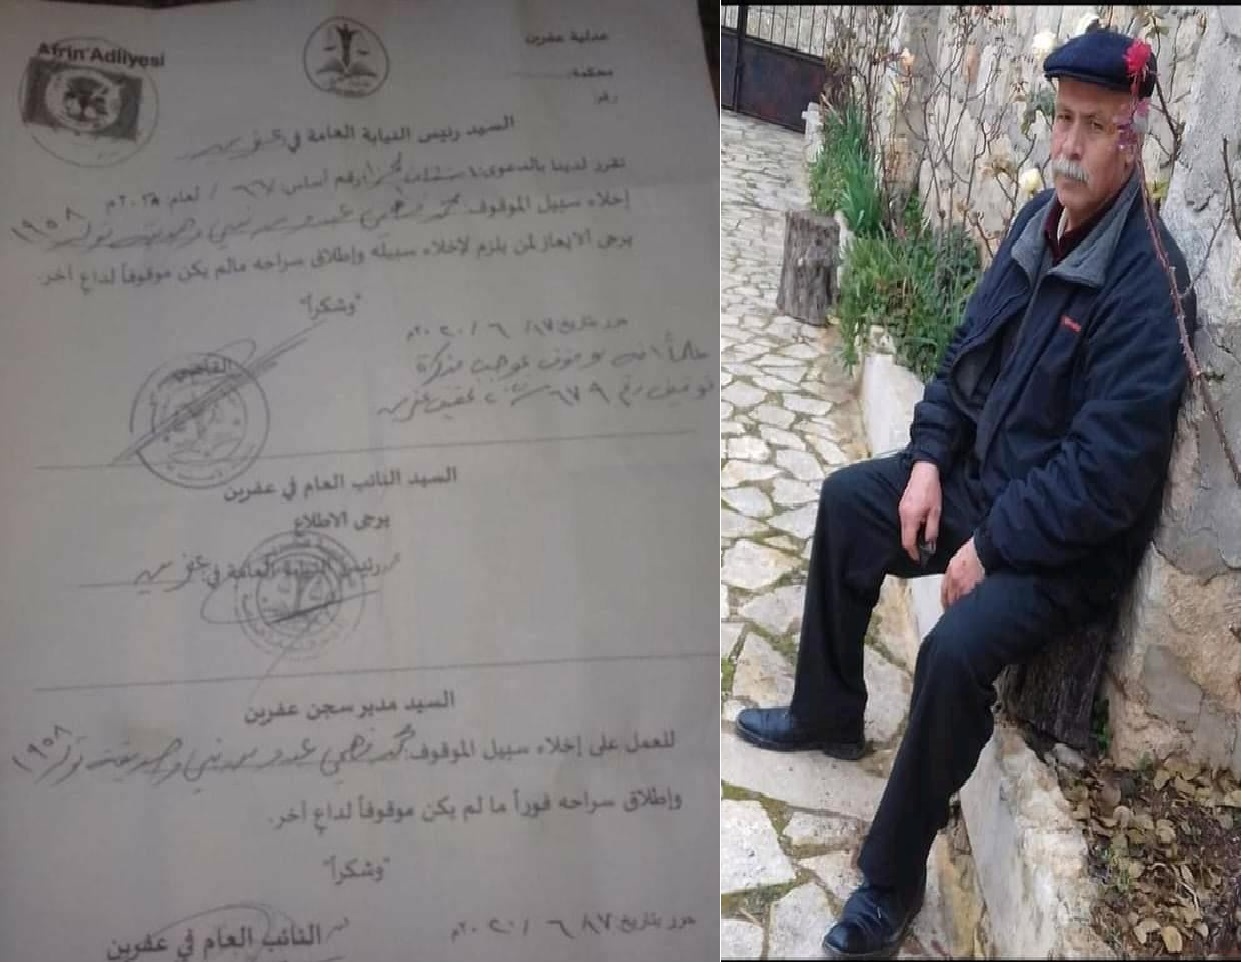 Afrin Adliyesi
عدلية عفرين
محكمة:
رقم:
السيد رئيس النيابة العامة في عفرين
تقرر لدينا بالدعوى: رقم أساس: ٦٧ / لعام: ٢٠٢٠م
إخلاء سبيل الموقوف: محمد فهمي عبدو تولد ١٩٥٨
يرجى الايعاز لمن يلزم لإخلاء سبيله وإطلاق سراحه مالم يكن موقوفاً لداعٍ آخر.
"وشكراً"
حرر بتاريخ ١٧/ ٦ / ٢٠٢٠م
علماً انه موقوف بموجب مذكرة
توقيف رقم ٦٧٩ تحقيق عفرين
القاضي
السيد النائب العام في عفرين
يرجى الاطلاع
رئيس النيابة العامة في: عفرين
السيد مدير سجن عفرين
للعمل على إخلاء سبيل الموقوف: محمد فهمي عبدو تولد ١٩٥٨
وإطلاق سراحه فوراً ما لم يكن موقوفاً لداعٍ آخر.
"وشكراً"
حرر بتاريخ: ١٧/ ٦ / ٢٠٢٠م
النائب العام في عفرين